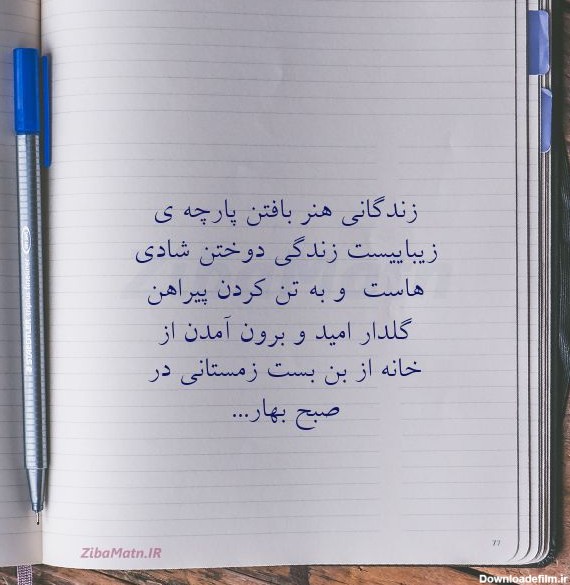 زندگانی هنر بافتن پارچه ی
زیباییست زندگی دوختن شادی
هاست و به تن کردن پیراهن
گلدار امید و برون آمدن از
خانه از بن بست زمستانی در
صبح بهار...
77
ZibaMatn.IR
Downloadefilm.ir